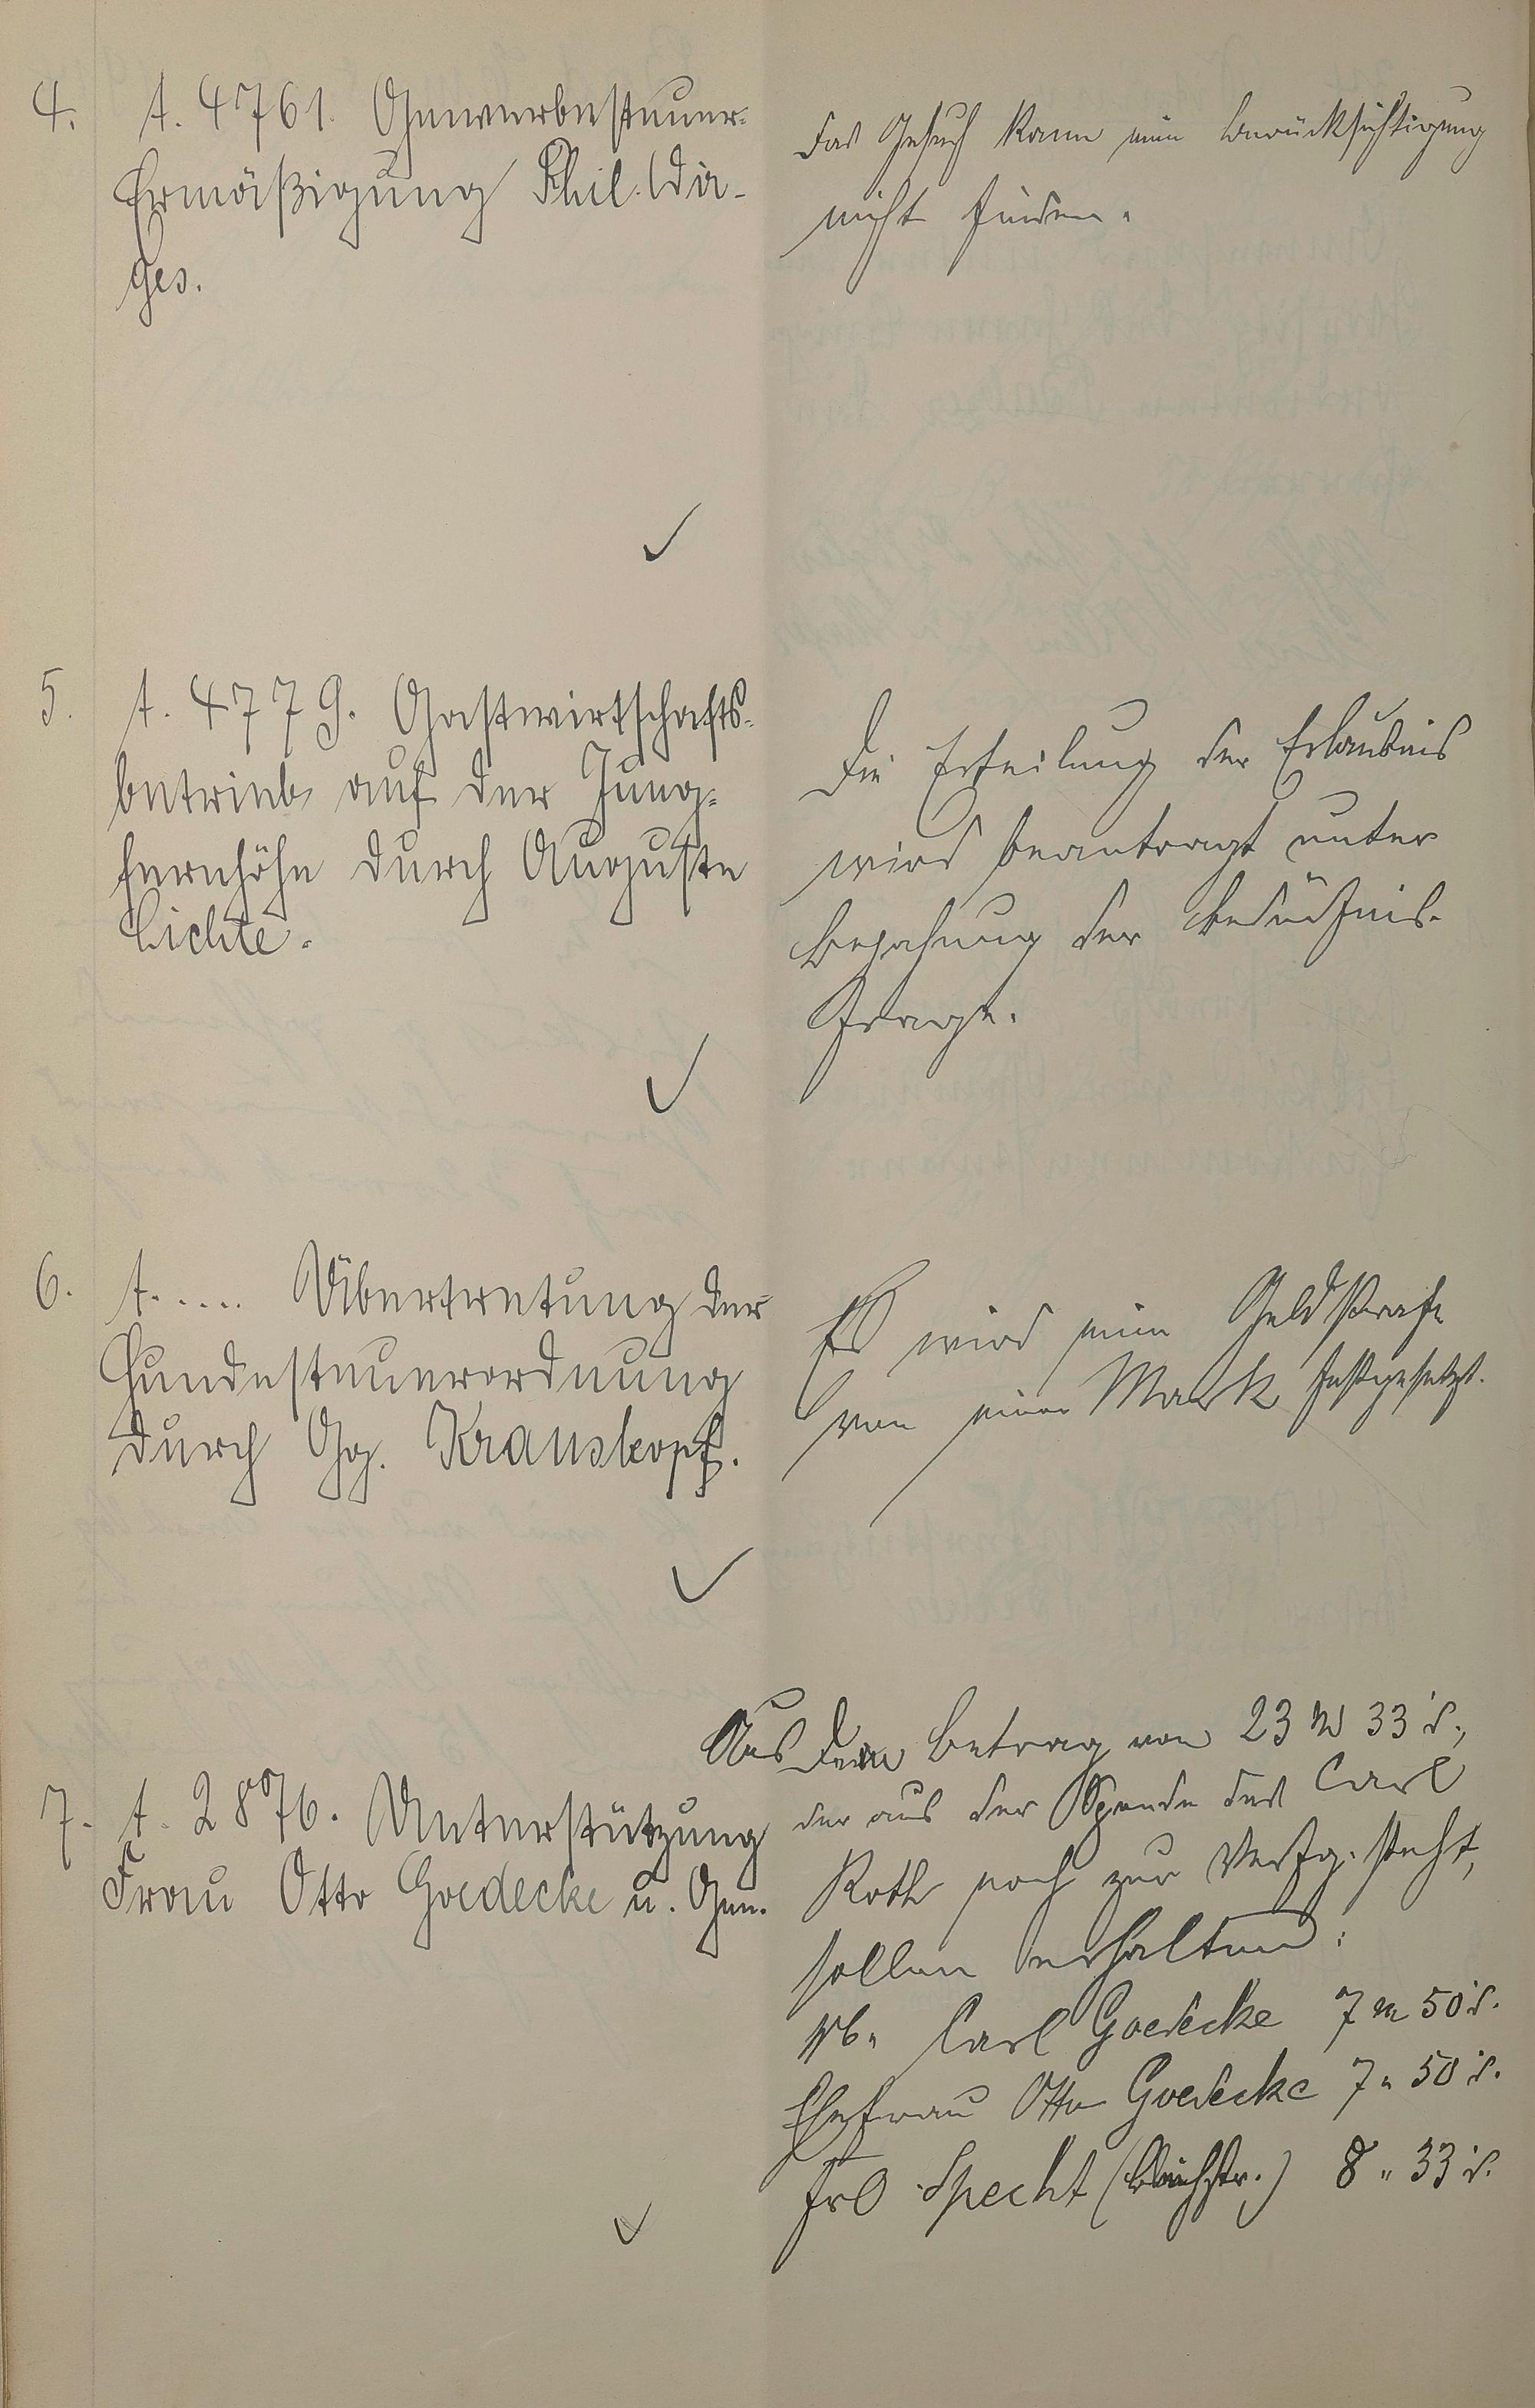 4. t. 4761. Gewerbesteuer-
Ermäßigung Phil. Dör-
ges.
Das Gesuch kann eine Berücksichtigung
nicht finden.
5. t. 4779. Gastwirtschafts-
betrieb auf der Jung-
fernhöhe durch Auguste
Lichte.
Die Erteilung der Erlaubnis
wird beantragt unter
Bejahung der Bedürfnis-
Frage.
6. t. .... Übertretung der
Hundesteuerordnung
durch Gg. Krauskopf.
Es wird eine Geldstrafe
von einer Mark festgesetzt.
7. t. 2876. Unterstützung
Frau Otto Goedecke u. Gen.
Aus dem Betrag von 23 M 33 d.,
der aus der Spende des Carl
Roth noch zur Verfg. steht,
sollen erhalten:
Carl Goedecke 7 M 50 d.
Ehefrau Otto Goedecke 7 " 50 d.
Frl Specht (Bachstr.) 8 " 33 d.